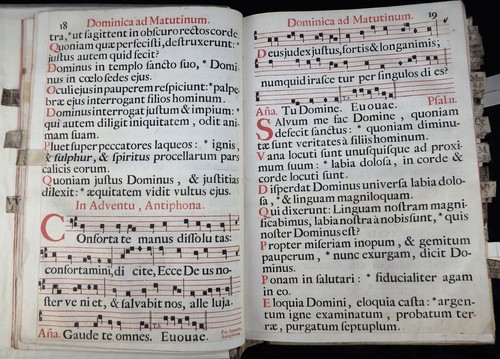 18
Dominica ad Matutinum.
tra, * ut sagittent in obscuro rectos corde.
Quoniam quæ perfecisti, destruxerunt: *
justus autem quid fecit?
Dominus in templo sancto suo, * Domi-
nus in cœlo sedes ejus.
Oculi ejus in pauperem respiciunt: * palpe-
bræ ejus interrogant filios hominum.
Dominus interrogat justum & impium: *
qui autem diligit iniquitatem, odit ani-
mam suam.
Pluet super peccatores laqueos: * ignis,
& sulphur, & spiritus procellarum pars
calicis eorum.
Quoniam justus Dominus, & justitias
dilexit: * æquitatem vidit vultus ejus.
In Adventu, Antiphona.
Confortate manus dissolutas:
confortamini, dicite, Ecce Deus no-
ster veniet, & salvabit nos, alleluja.
Aña. Gaude te omnes. Euouae.
Dominica ad Matutinum.
19
Deus judex justus, fortis & longanimis;
numquid irascetur per singulos dies?
Aña. Tu Domine. Euouae. Psal.11.
Salvum me fac Domine, quoniam
defecit sanctus: * quoniam diminu-
tæ sunt veritates à filiis hominum.
Vana locuti sunt unusquisque ad proxi-
mum suum: * labia dolosa, in corde &
corde locuti sunt.
Disperdat Dominus universa labia dolo-
sa, * & linguam magniloquam.
Qui dixerunt: Linguam nostram magni-
ficabimus, labia nostra à nobis sunt, * quis
noster Dominus est?
Propter miseriam inopum, & gemitum
pauperum, * nunc exurgam, dicit Do-
minus.
Ponam in salutari: * fiducialiter agam
in eo.
Eloquia Domini, eloquia casta: * argen-
tum igne examinatum, probatum ter-
ræ, purgatum septuplum.